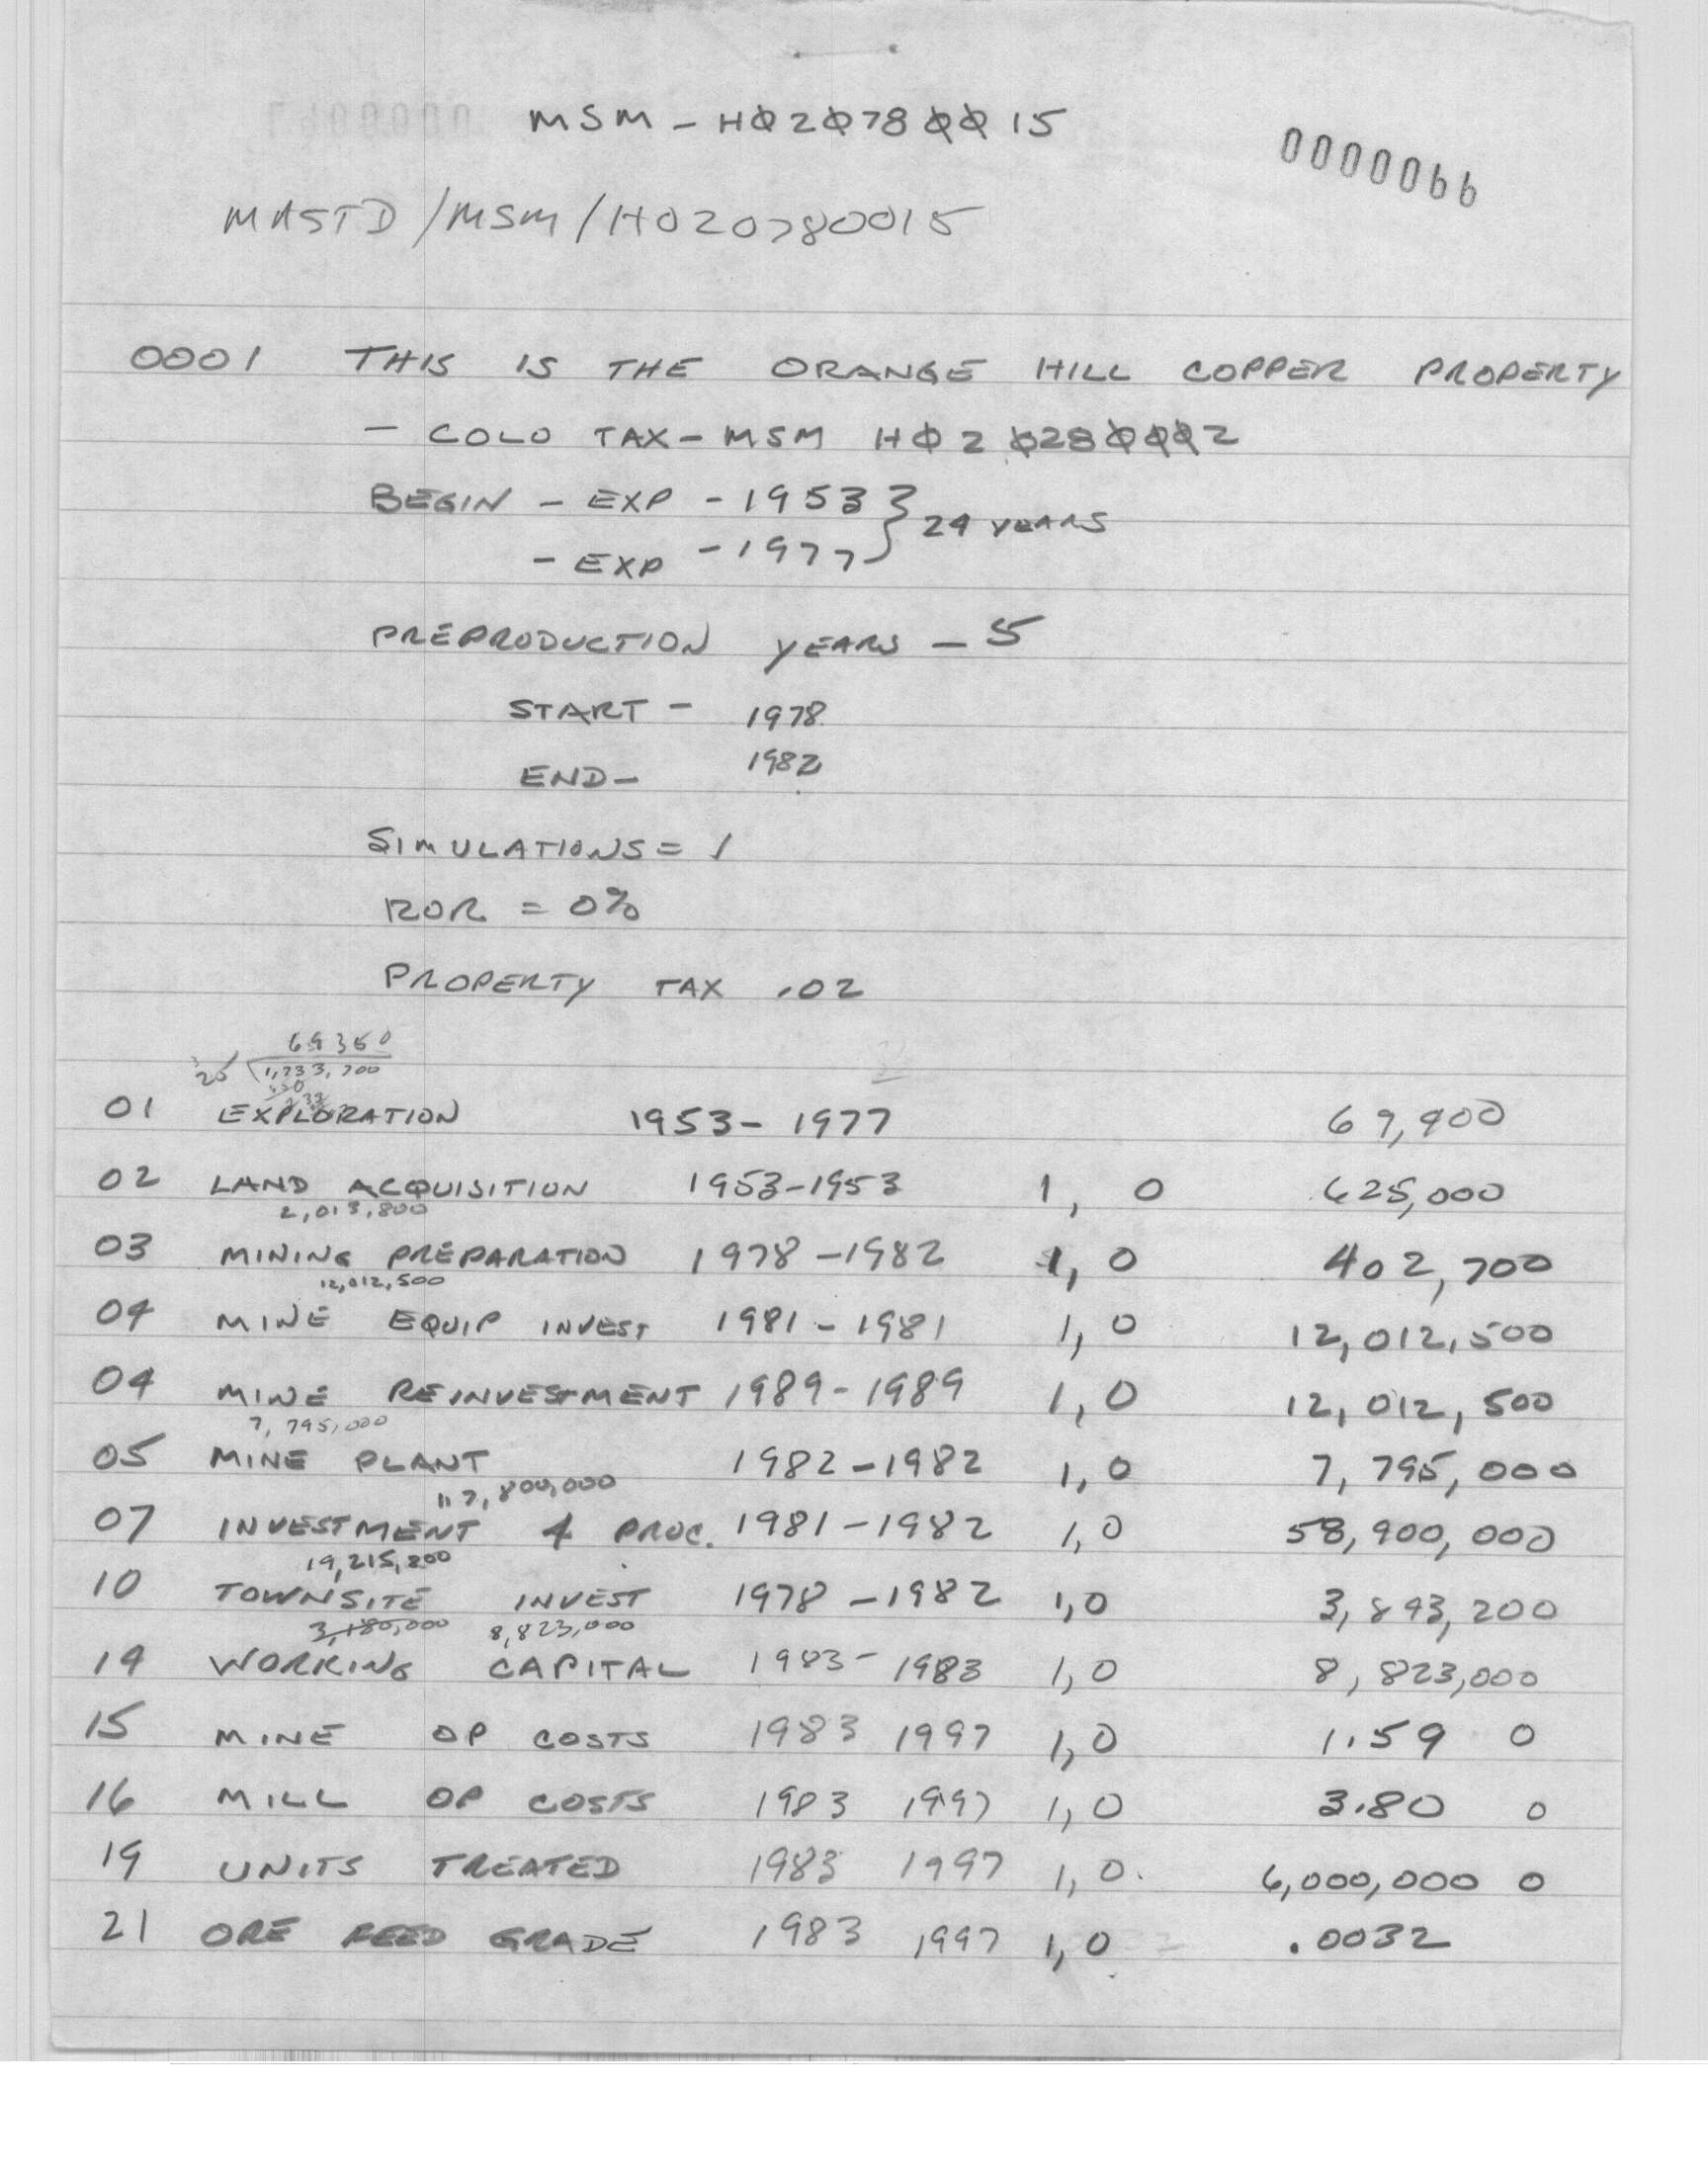 MSM - HØ2Ø78ØØ15
0000066
MASTD/MSM/H020780015
0001 THIS IS THE ORANGE HILL COPPER PROPERTY
- COLO TAX - MSM HØ2Ø28ØØØ2
BEGIN - EXP - 1953 } 24 YEARS
- EXP - 1977
PREPRODUCTION YEARS - 5
START - 1978
END - 1982
SIMULATIONS = 1
ROR = 0%
PROPERTY TAX .02
69350
25 1,733,700
01 EXPLORATION 1953 - 1977 69,400
02 LAND ACQUISITION 1953-1953 1, 0 625,000
2,013,800
03 MINING PREPARATION 1978 - 1982 1, 0 402,700
12,012,500
04 MINE EQUIP INVEST 1981 - 1981 1, 0 12,012,500
04 MINE REINVESTMENT 1989 - 1989 1, 0 12,012,500
7,795,000
05 MINE PLANT 1982 - 1982 1, 0 7,795,000
117,800,000
07 INVESTMENT 4 PROC. 1981 - 1982 1, 0 58,900,000
19,215,200
10 TOWNSITE INVEST 1978 - 1982 1, 0 3,843,200
3,180,000 8,823,000
14 WORKING CAPITAL 1983 - 1983 1, 0 8,823,000
15 MINE OP COSTS 1983 1997 1, 0 1.59 0
16 MILL OP COSTS 1983 1997 1, 0 3.80 0
19 UNITS TREATED 1983 1997 1, 0. 6,000,000 0
21 ORE FEED GRADE 1983 1997 1, 0 .0032